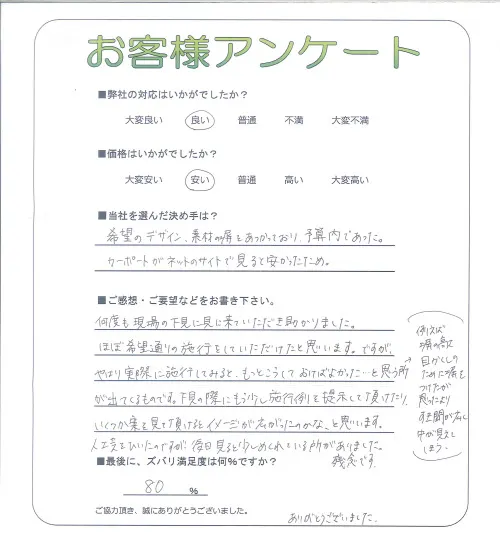 お客様アンケート
■弊社の対応はいかがでしたか?
大変良い 良い 普通 不満 大変不満
■価格はいかがでしたか?
大変安い 安い 普通 高い 大変高い
■当社を選んだ決め手は?
希望のデザイン、素材の塀をあつかっており、予算内であった。
カーポートがネットのサイトで見ると安かったため。
■ご感想・ご要望などをお書き下さい。
何度も現場の下見に見に来ていただき助かりました。
ほぼ希望通りの施行をしていただけたと思います。ですが、
やはり実際に施行してみると、もっとこうしておけばよかった…と思う所
が出てくるものです。下見の際にもう少し施行例を提示して頂けたり、
いくつか案を見て頂けるとイメージが広がったのかな、と思います。
人工芝をひいたのですが、後日見ると少しめくれている所がありました。
残念です。
例えば
塀の
目かくしの
ために塀を
つけたが
思ったより
す間が広く
中が見えて
しまう。
■最後に、ズバリ満足度は何%ですか?
80 %
ご協力頂き、誠にありがとうございました。
ありがとうございました。